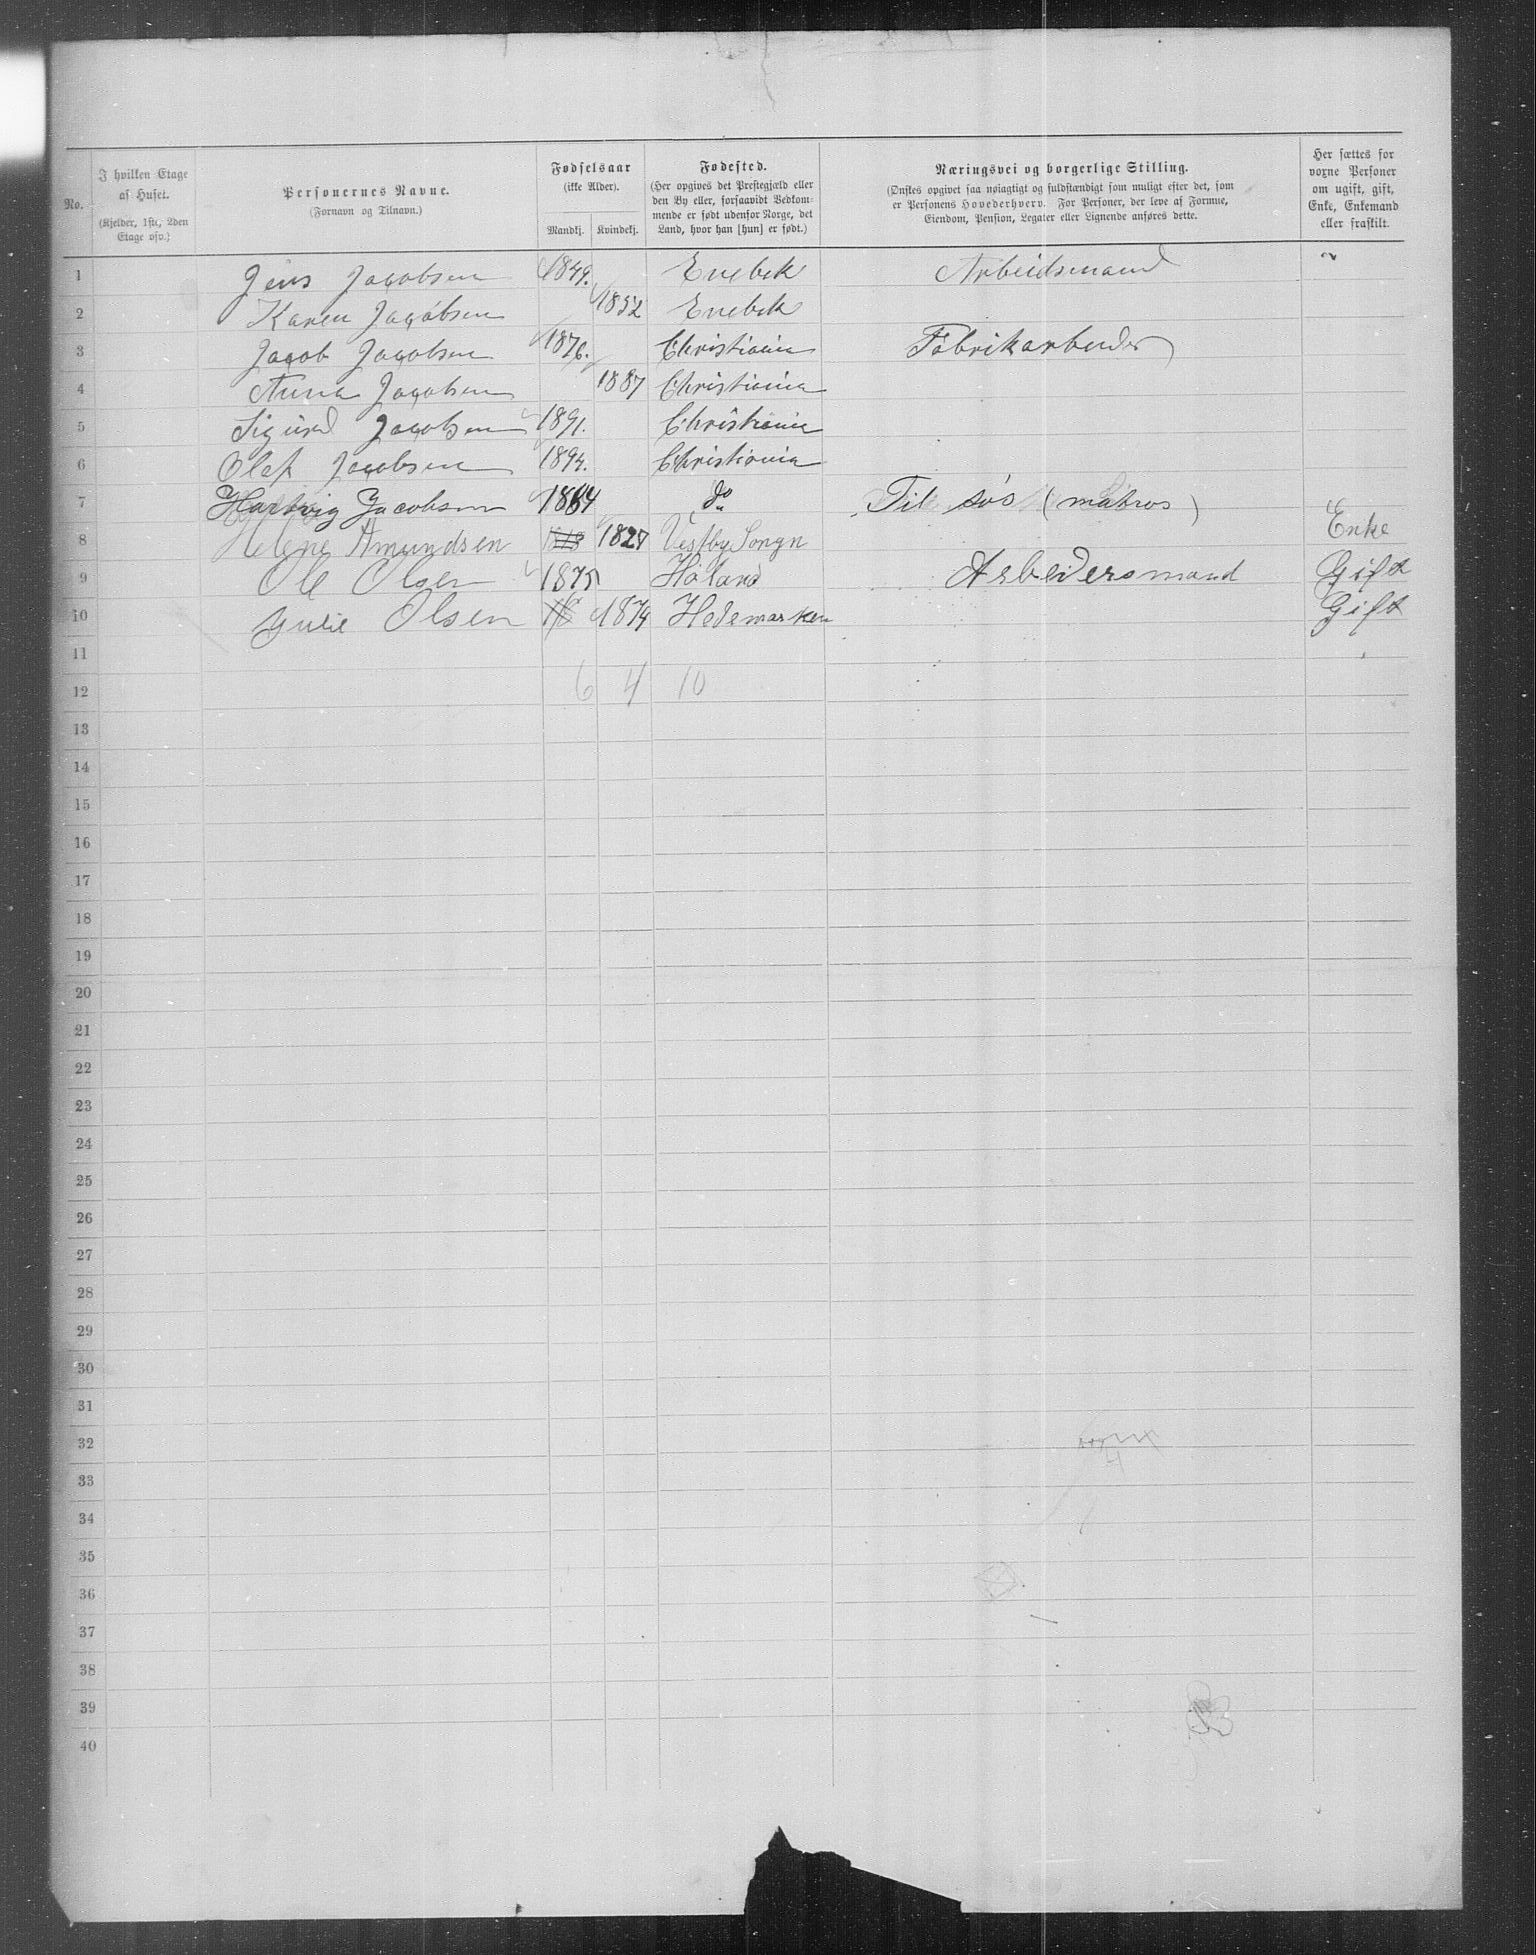 No. | I hvilken Etage af Huset. (Kjelder, 1ste, 2den Etage osv.) | Personernes Navne. (Fornavn og Tilnavn.) | Fødselsaar (ikke Alder). Mandkj. | Kvindekj. | Fødested. (Her opgives det Prestegjæld eller den By eller, forsaavidt Vedkommende er født udenfor Norge, det Land, hvor han [hun] er født.) | Næringsvei og borgerlige Stilling. (Ønskes opgivet saa nøiagtigt og fuldstændigt som muligt efter det, som er Personens Hovederhverv. For Personer, der leve af Formue, Eiendom, Pension, Legater eller Lignende anføres dette.) | Her sættes for voxne Personer om ugift, gift, Enke, Enkemand eller fraskilt.
1 Jens Jacobsen 1849. Enebek Arbeidsmand
2 Karen Jacobsen 1852 Enebek
3 Jacob Jacobsen 1876. Christiania Fabrikarbeider
4 Anna Jacobsen 1887 Christiania
5 Sigurd Jacobsen 1891. Christiania
6 Olaf Jacobsen 1894. Christiania
7 Hartvig Jacobsen 1864 do Til søs (matros)
8 Helene Amundsen 1827 Vestby Songn Enke
9 Ole Olsen 1875 Høland Arbeidersmand Gift
10 Julie Olsen 1874 Hedemarken Gift
11
12 6 4 10
13
14
15
16
17
18
19
20
21
22
23
24
25
26
27
28
29
30
31
32
33
34
35
36
37
38
39
40